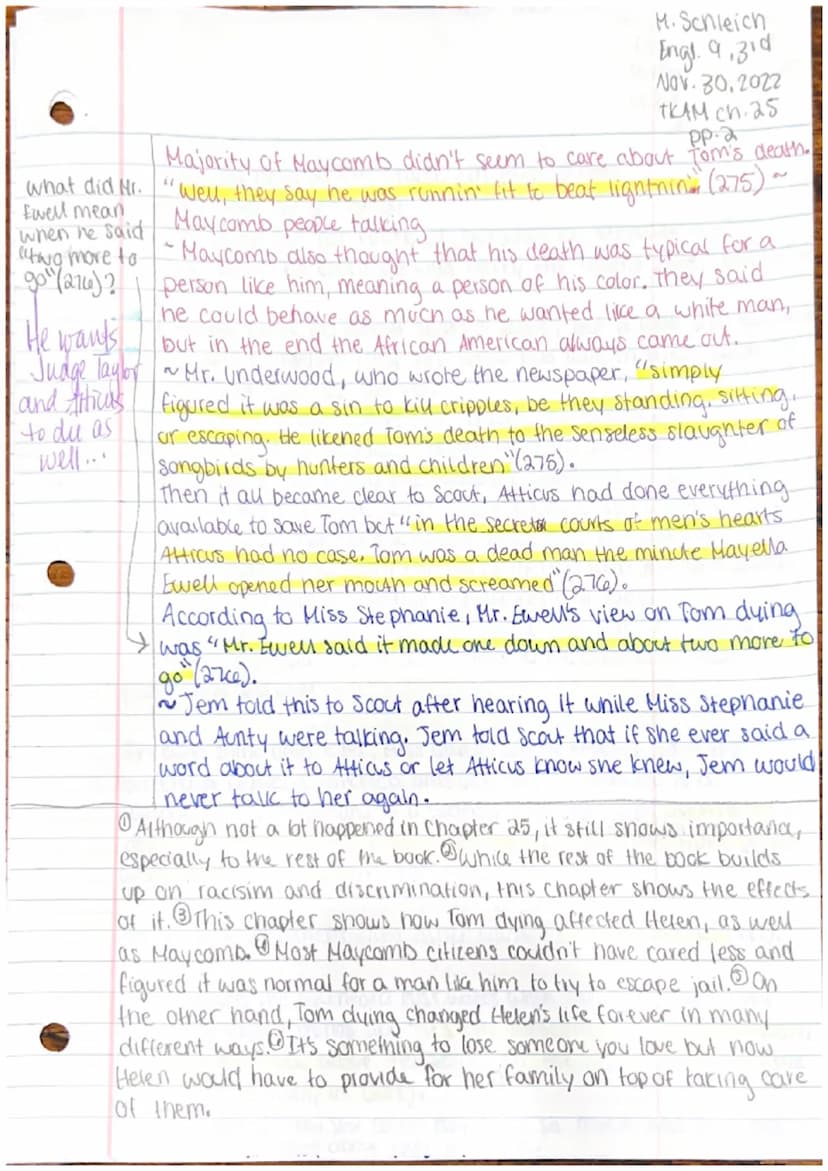 M. Schleich
Engl. 9, 3rd
Nov. 30, 2022
TKAM ch. 25
pp. 2
what did Mr.
Ewell mean
when he said
"two more to
go" (276)?
He wants
Judge Taylor
and Atticus
to die as
well...
Majority of Maycomb didn't seem to care about Tom's death.
"Well, they say he was runnin' fit to beat lightnin'" (275) ~
Maycomb people talking
~ Maycomb also thought that his death was typical for a
person like him, meaning a person of his color. They said
he could behave as much as he wanted like a white man,
but in the end the African American always came out.
~ Mr. Underwood, who wrote the newspaper, "simply
figured it was a sin to kill cripples, be they standing, sitting,
or escaping. He likened Tom's death to the senseless slaughter of
songbirds by hunters and children" (275).
Then it all became clear to Scout, Atticus had done everything
available to save Tom but "in the secret courts of men's hearts
Atticus had no case. Tom was a dead man the minute Mayella
Ewell opened her mouth and screamed" (276).
According to Miss Stephanie, Mr. Ewell's view on Tom dying
was "Mr. Ewell said it made one down and about two more to
go" (276).
~ Jem told this to Scout after hearing it while Miss Stephanie
and Aunty were talking. Jem told Scout that if she ever said a
word about it to Atticus or let Atticus know she knew, Jem would
never talk to her again.
① Although not a lot happened in Chapter 25, it still shows importance,
especially to the rest of the book. ② While the rest of the book builds
up on racisim and discrimination, this chapter shows the effects
of it. ③ This chapter shows how Tom dying affected Helen, as well
as Maycomb. ④ Most Maycomb citizens couldn't have cared less and
figured it was normal for a man like him to try to escape jail. ⑤ On
the other hand, Tom dying changed Helen's life forever in many
different ways. ⑥ It's something to lose someone you love but now
Helen would have to provide for her family on top of taking care
of them.